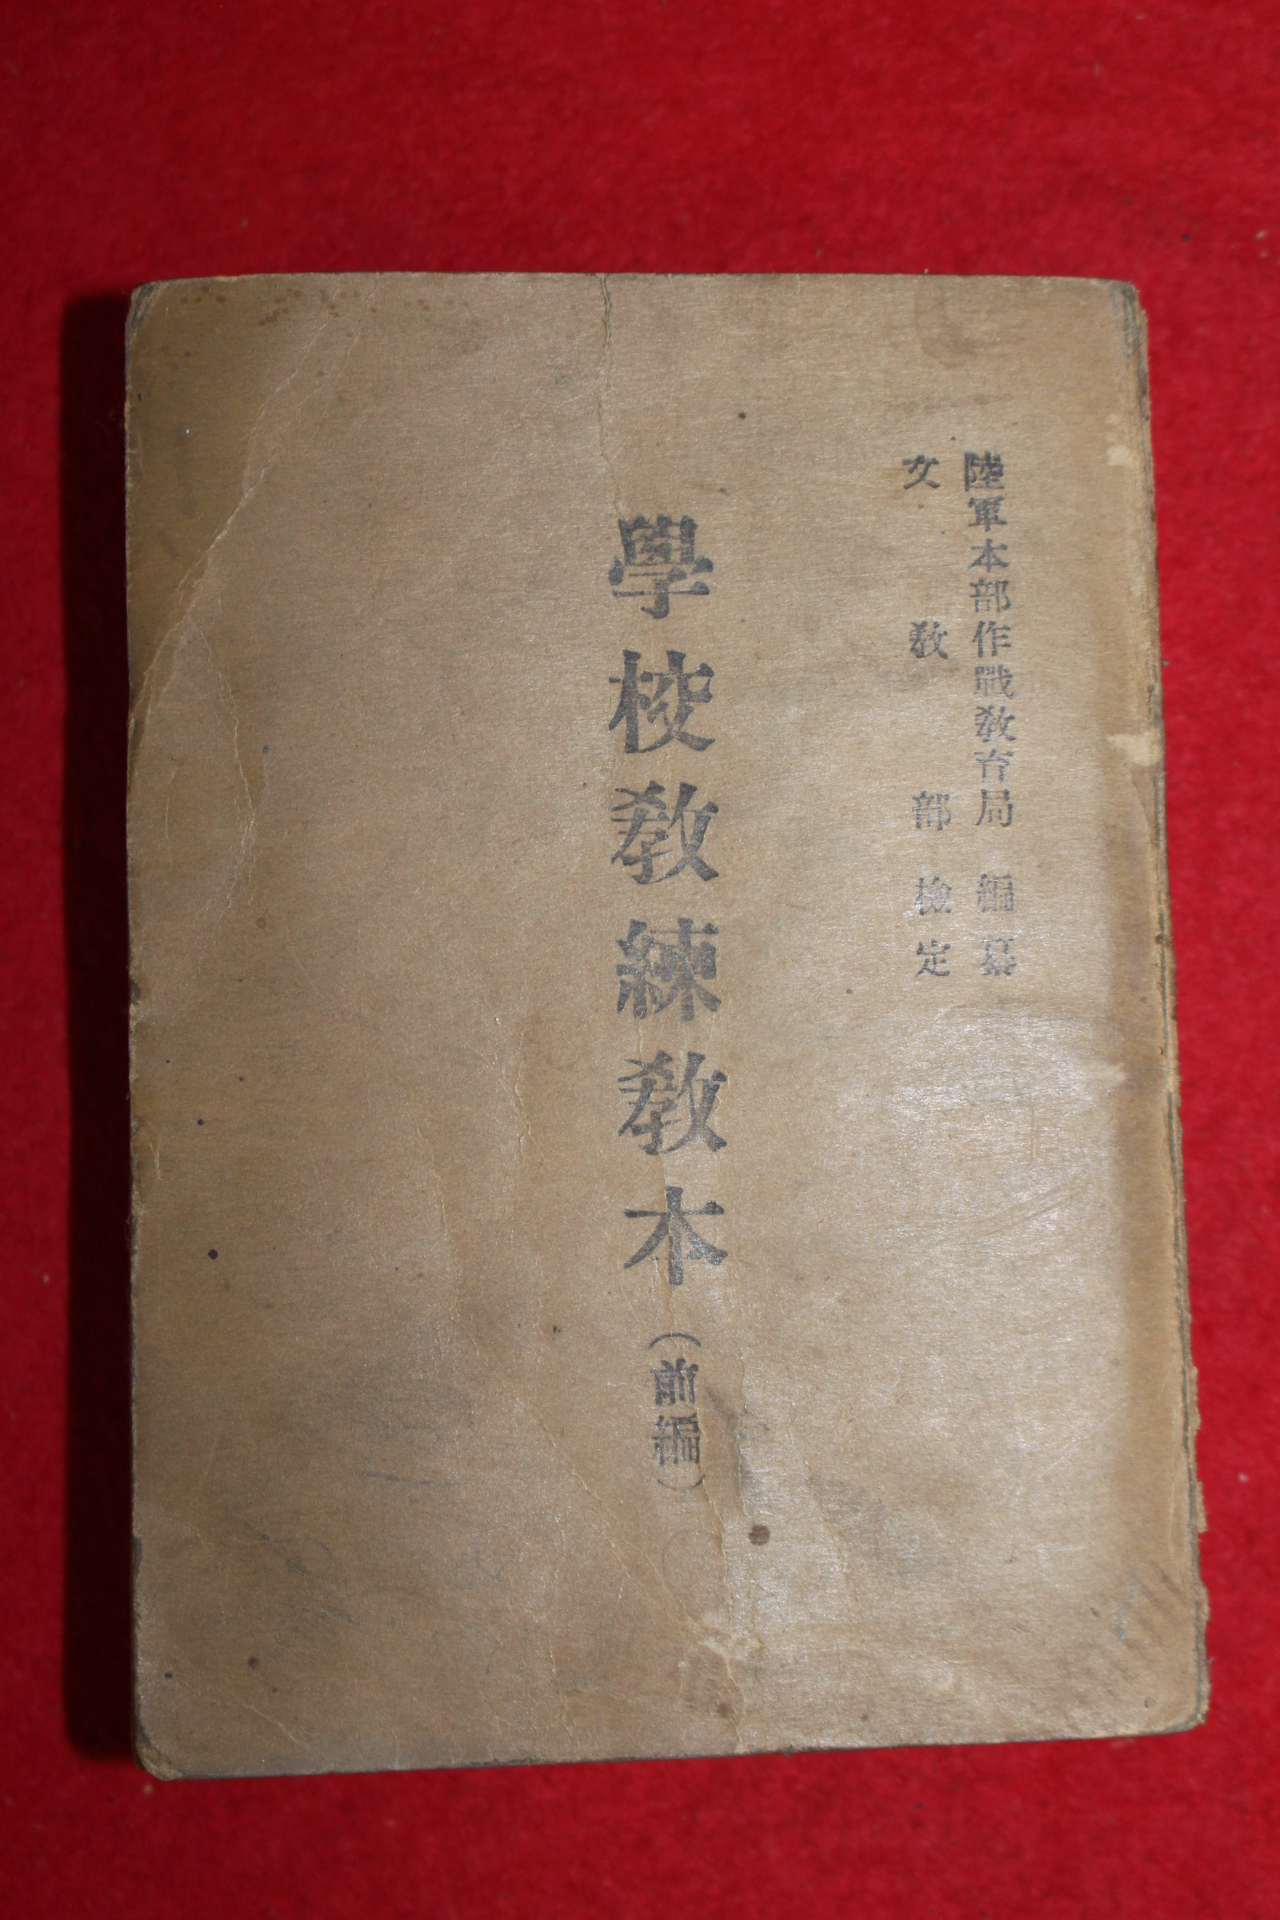 陸軍本部作戰敎育局 編纂
文敎部檢定
學校敎練敎本(前編)